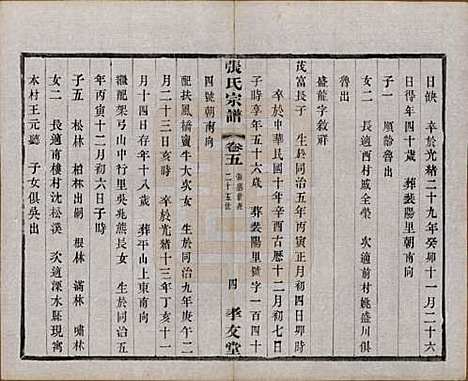 日缺　卒於光緒二十九年癸卯十一月二十六
日得年四十歲　葬裴陽里朝南向
子一　順齡出嗣
女二　長適西村戚全榮　次適前村姚盛川俱
魯出
盛龍字敘祥
茂富長子　生於同治五年丙寅正月初四日戌時
卒於中華民國十年辛酉古歷十二月初七日
子時享年五十六歲　葬裴陽里號字一百四十
四號朝南向
張氏宗譜
卷五
二十五世
四
孝友堂
配扶風橋竇牛大次女　生於同治九年庚午二
月二十三日亥時　卒於光緒十三年丁亥十一
月十四日存年十八歲　葬平山上朝東南向
繼配架弓山中行里吳兆熊長女　生於同治
年丙寅十二月初六日子時
子五　松林　柏林出嗣　根林　滿林　嘯林
女二　長適南樓村沈松溪　次適溧水縣現寓
本村王元聽　子女俱吳出